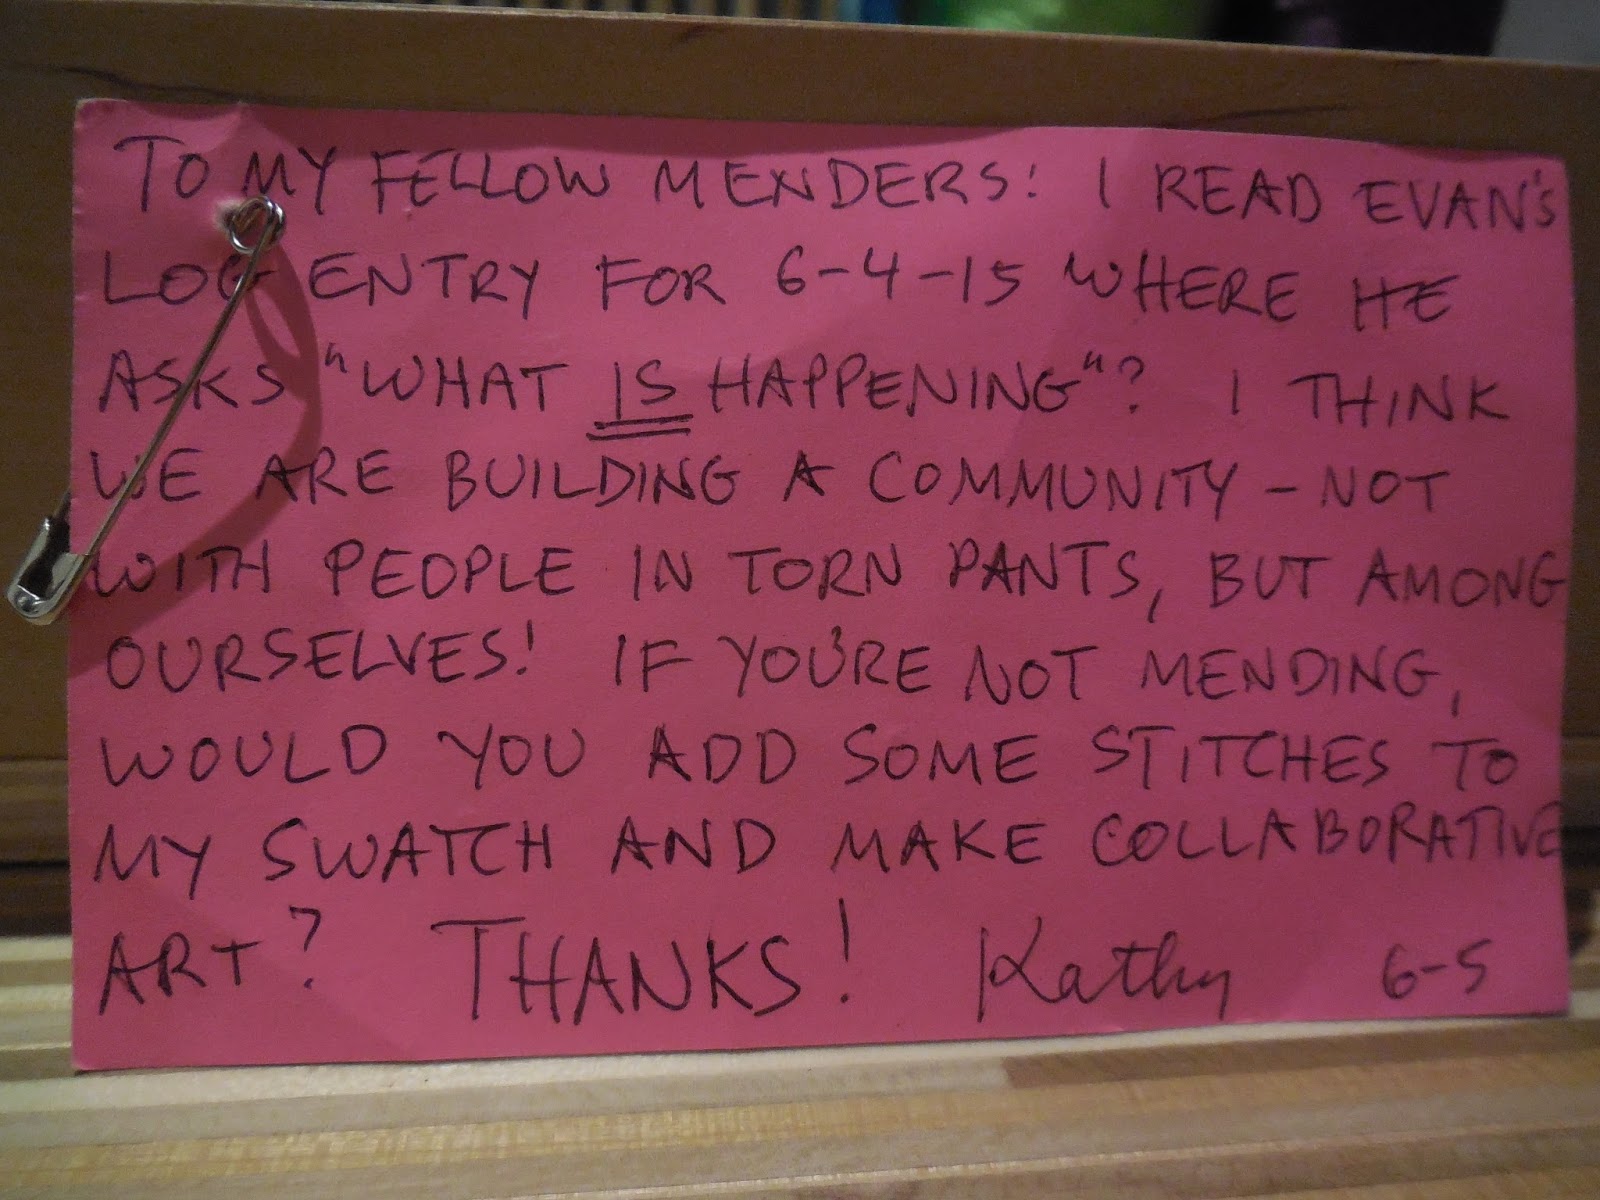 TO MY FELLOW MENDERS: I READ EVAN'S
LOG ENTRY FOR 6-4-15 WHERE HE
ASKS "WHAT IS HAPPENING"? I THINK
WE ARE BUILDING A COMMUNITY - NOT
WITH PEOPLE IN TORN PANTS, BUT AMONG
OURSELVES! IF YOU'RE NOT MENDING,
WOULD YOU ADD SOME STITCHES TO
MY SWATCH AND MAKE COLLABORATIVE
ART? THANKS! Kathy 6-5